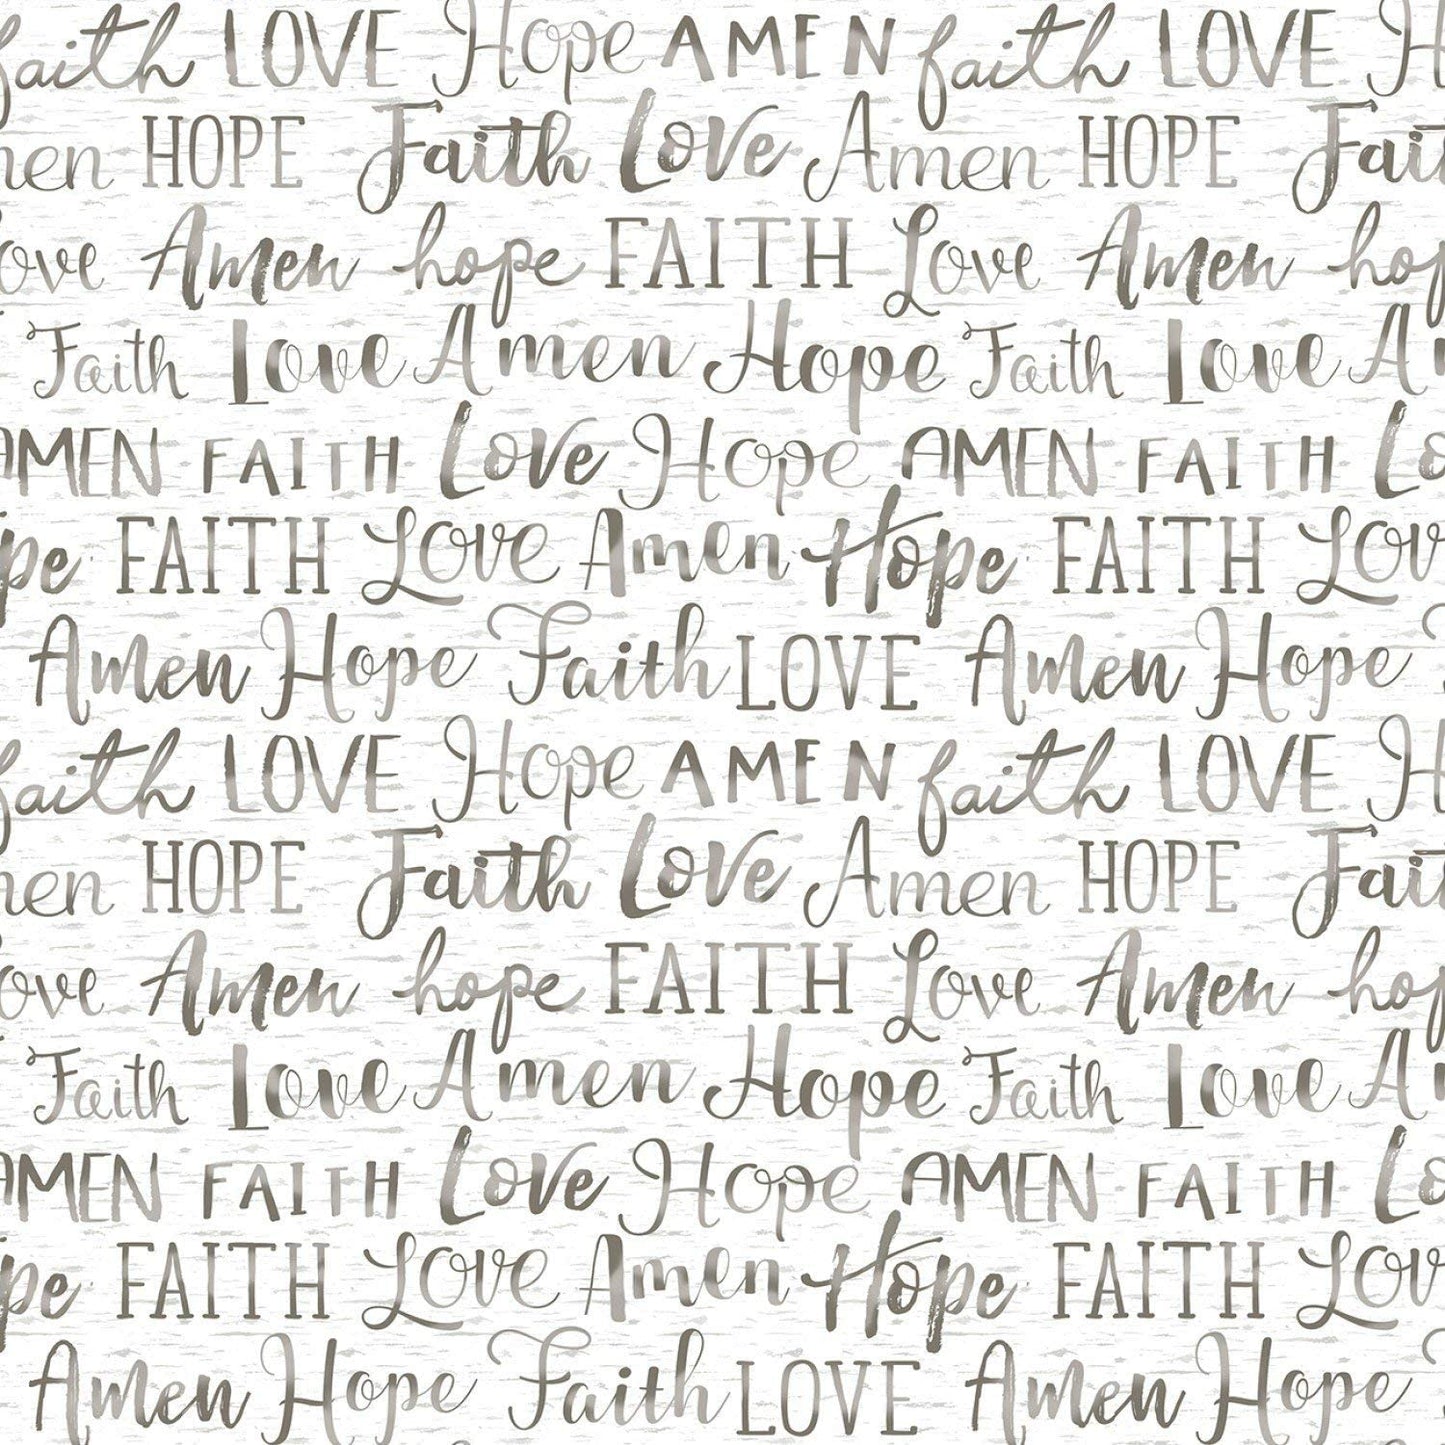 faith LOVE Hope AMEN faith LOVE H
men HOPE Faith Love Amen HOPE Fait
ove Amen hope FAITH Love Amen hop
Faith Love Amen Hope Faith Love Am
AMEN FAITH Love Hope AMEN FAITH Lo
pe FAITH Love Amen Hope FAITH Lov
Amen Hope Faith LOVE Amen Hope
faith LOVE Hope AMEN faith LOVE H
men HOPE Faith Love Amen HOPE Fait
ove Amen hope FAITH Love Amen hop
Faith Love Amen Hope Faith Love Am
AMEN FAITH Love Hope AMEN FAITH Lo
pe FAITH Love Amen Hope FAITH Lov
Amen Hope Faith LOVE Amen Hope